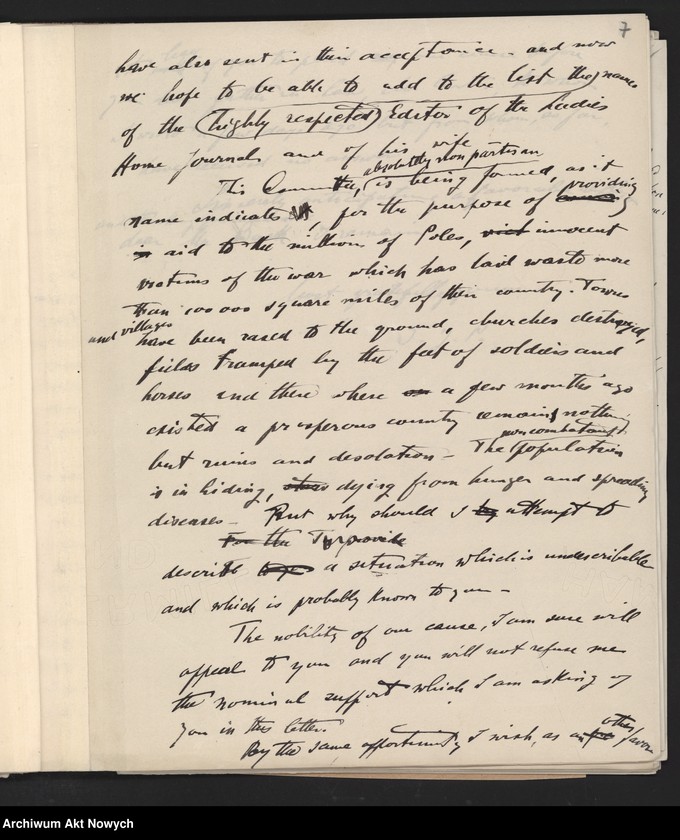 7
have also sent in their acceptance - and now
we hope to be able to add to the list the names
of the (highly respected) Editor of the Ladies
Home Journal and of his wife
absolutely non partisan
This Committee, is being formed, as it
providing
name indicates, for the purpose of
aid to the million of Poles, innocent
victims of the war which has laid waste more
than 100 000 square miles of their country. Towns
and villages
have been rased to the ground, churches destroyed,
fields tramped by the feet of soldiers and
horses and there where a few months ago
existed a prosperous country remains nothing
but ruins and desolation - The population
noncombatant
is in hiding, dying from hunger and spreading
diseases - But why should I attempt to
For the
describe a situation which is undescribable
and which is probably known to you -
The nobility of our cause, I am sure will
appeal to you and you will not refuse me
the nominal support which I am asking of
you in this letter.
By the same opportunity I wish, as an other favor
Archiwum Akt Nowych